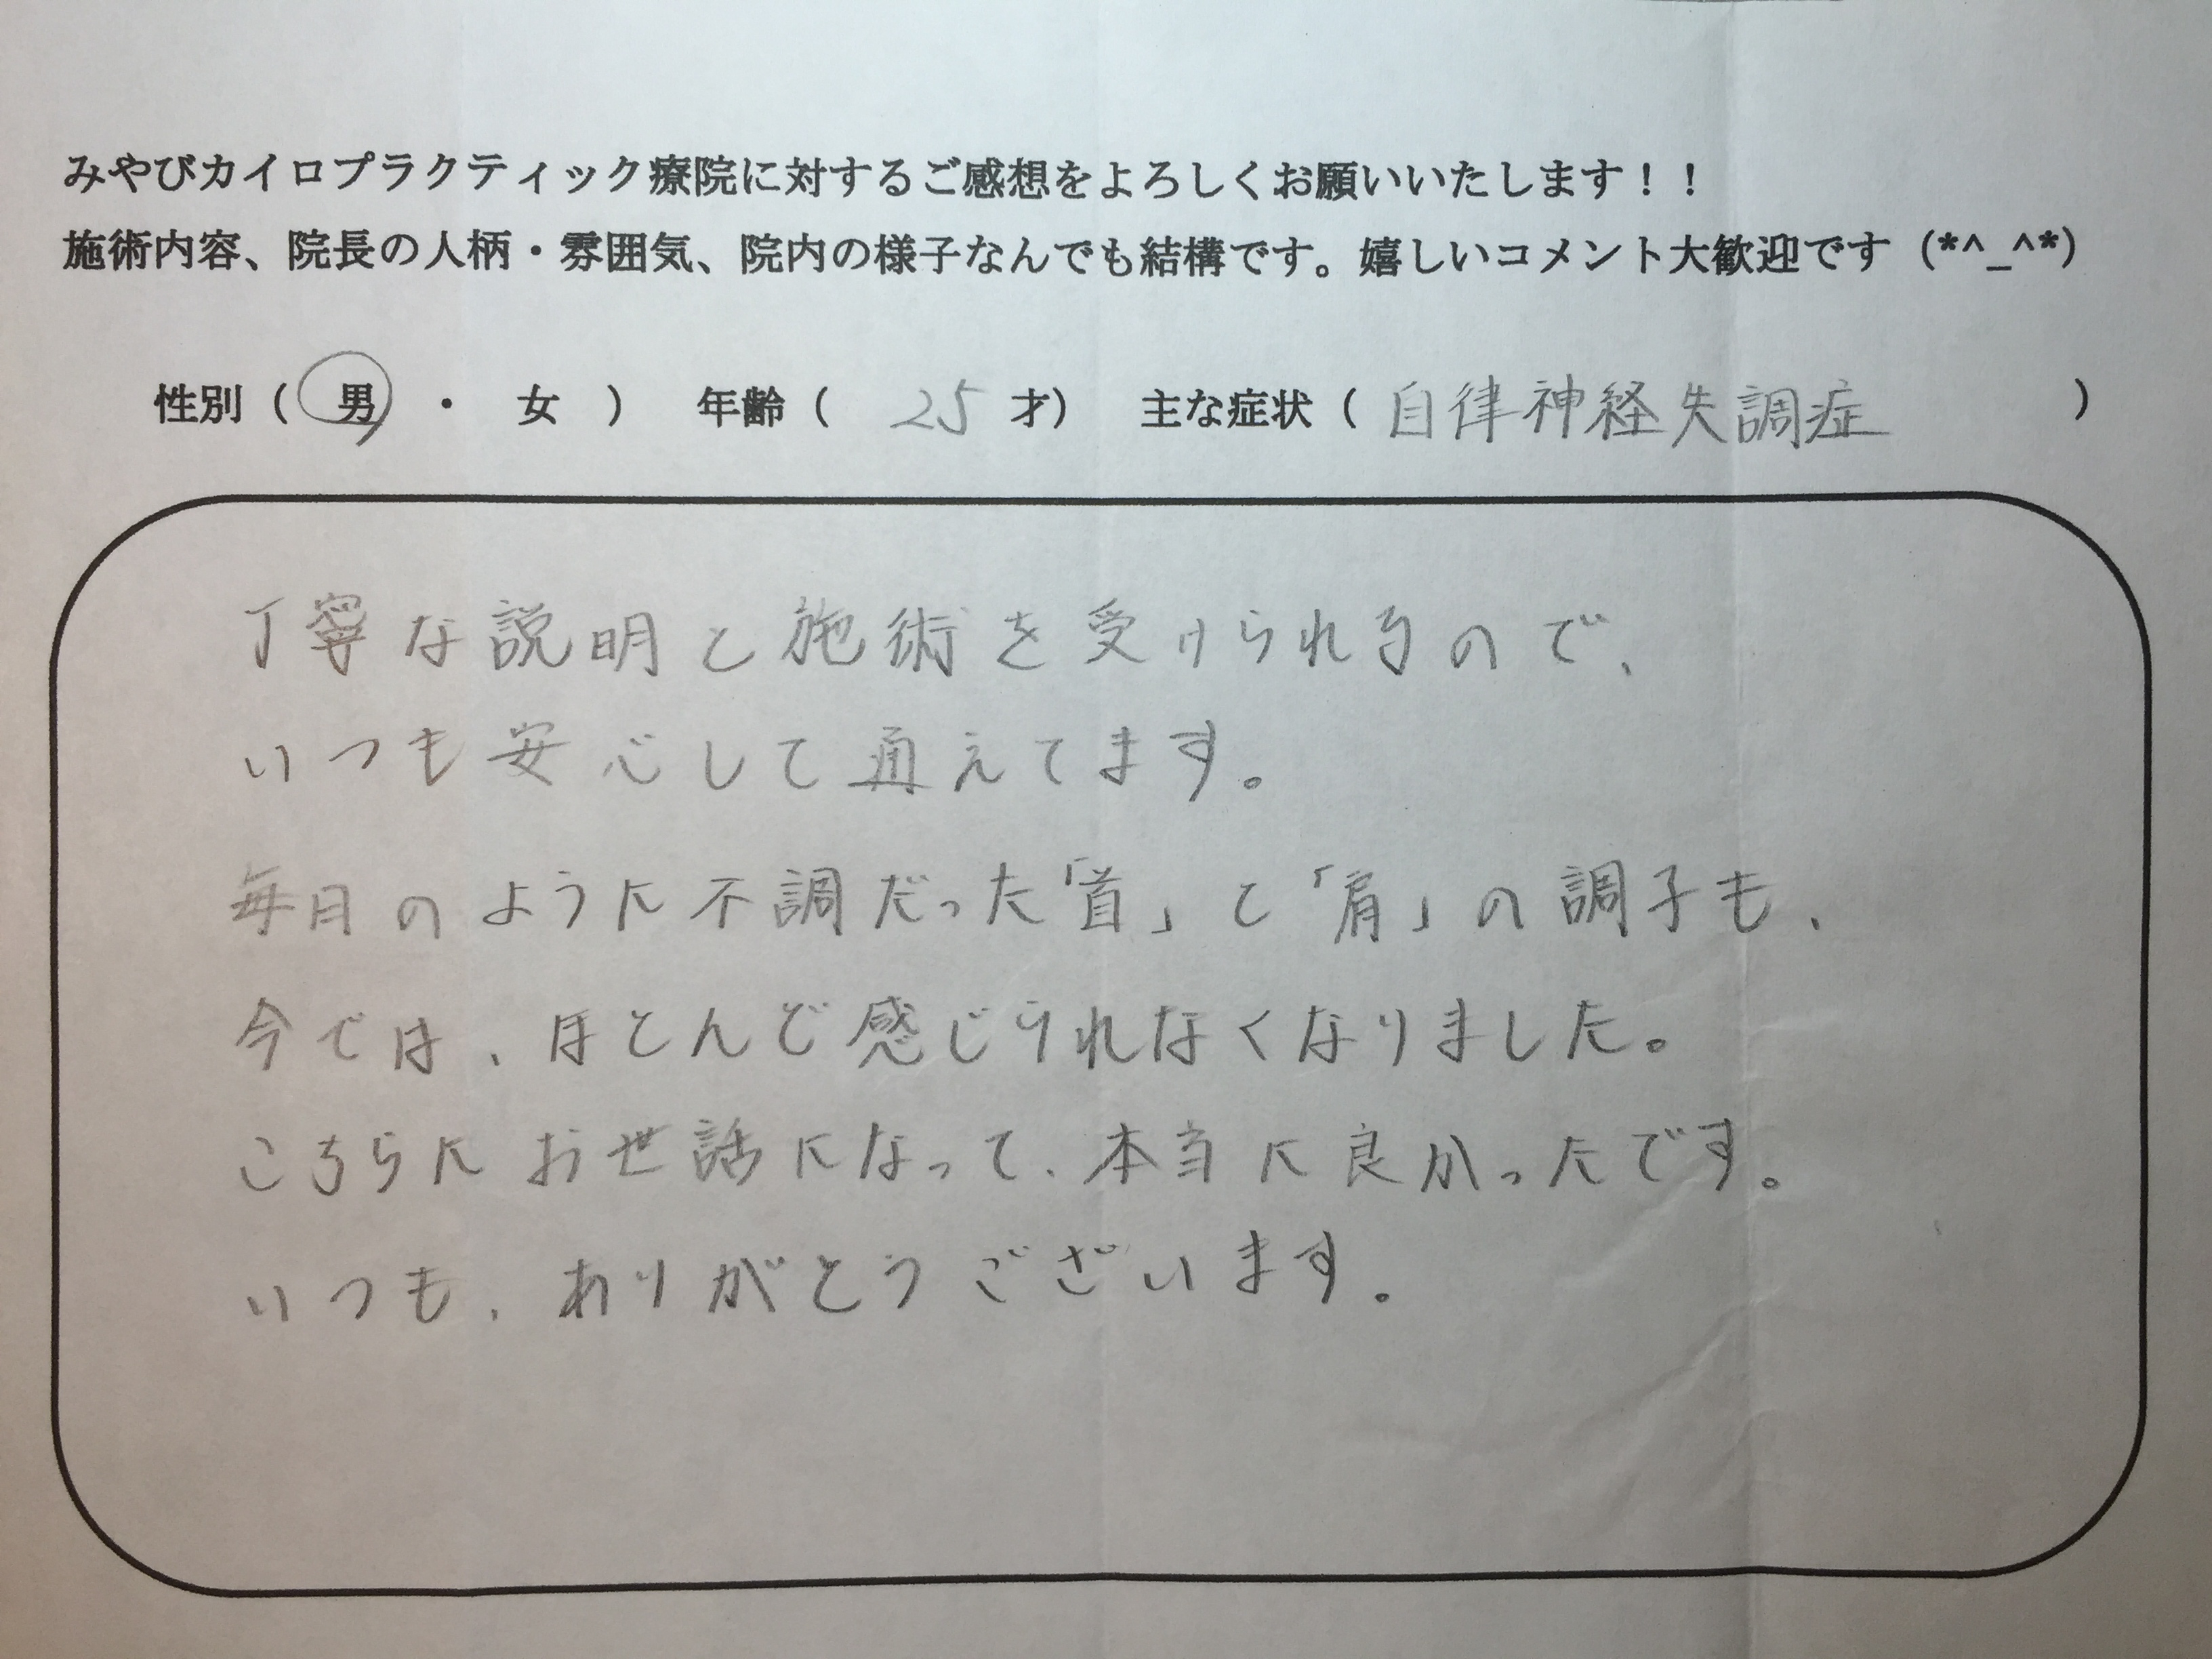 みやびカイロプラクティック療院に対するご感想をよろしくお願いいたします！！
施術内容、院長の人柄・雰囲気、院内の様子なんでも結構です。嬉しいコメント大歓迎です（*^_^*）
性別（ 男 ・ 女 ） 年齢（ 25 才） 主な症状（ 自律神経失調症 ）
丁寧な説明と施術を受けられるので、
いつも安心して通えてます。
毎日のように不調だった「首」と「肩」の調子も、
今では、ほとんど感じられなくなりました。
こちらにお世話になって、本当に良かったです。
いつも、ありがとうございます。